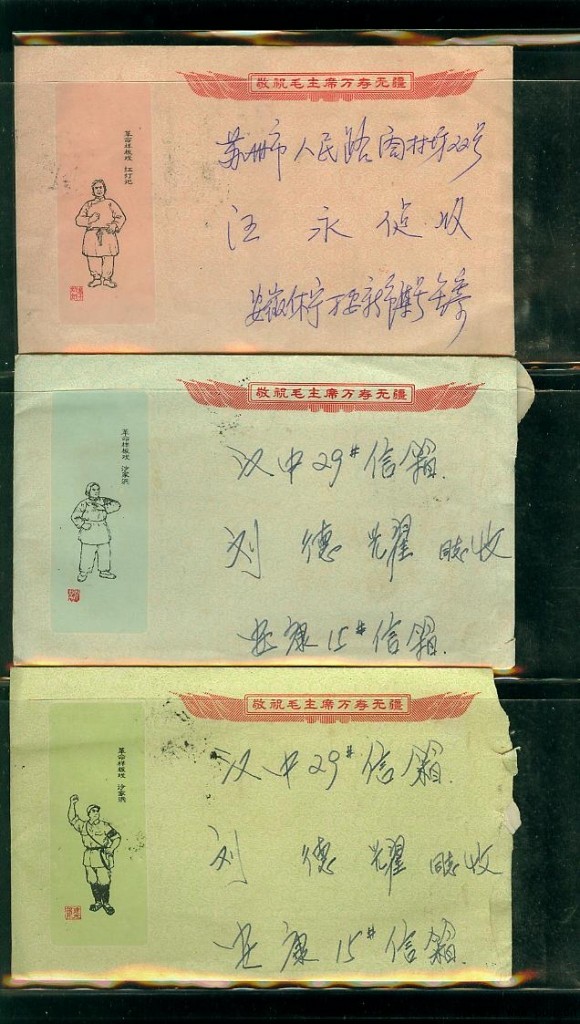 敬祝毛主席万寿无疆
革命样板戏 红灯记
苏州市人民路
汪永侦收
敬祝毛主席万寿无疆
革命样板戏 沙家浜
汉中29#信箱.
刘德耀同志收
安康15#信箱.
敬祝毛主席万寿无疆
革命样板戏 沙家浜
汉中29#信箱.
刘德耀同志收
安康15#信箱.